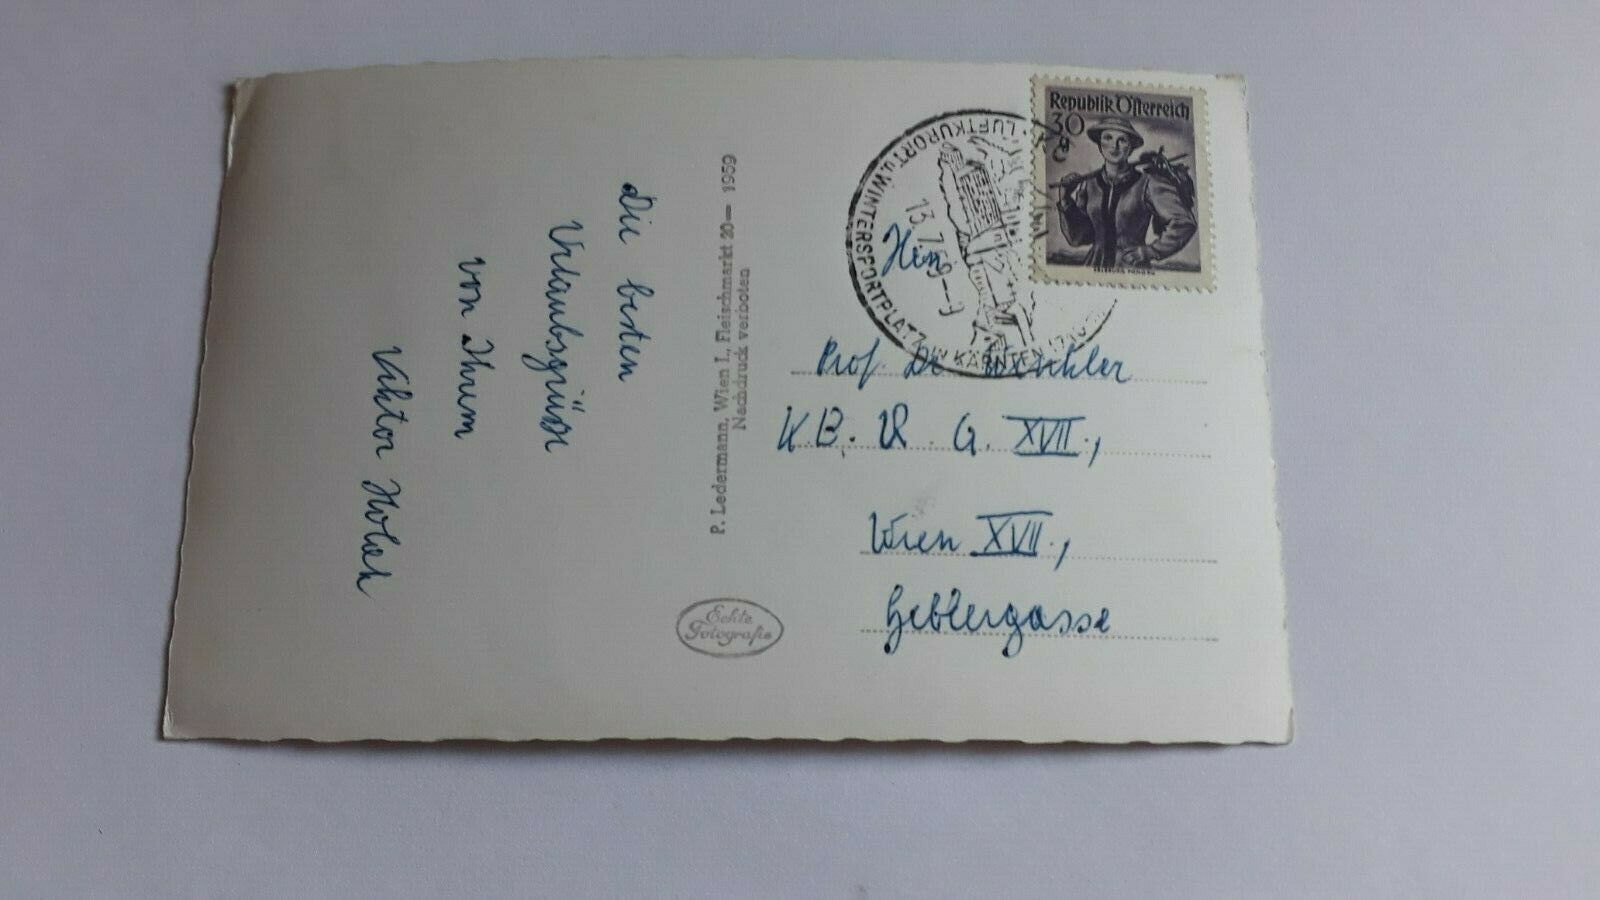 Die besten
Urlaubsgrüße
von Ihrem
Viktor Holak
P. Ledermann, Wien I., Fleischmarkt 20— 1959
Nachdruck verboten
Echte
Fotografie
Republik Österreich
30
g
SALZBURG PONGAU
LUFTKURORT u. WINTERSPORTPLATZ IN KÄRNTEN
13.7.59-9
Herrn
Prof. Dr.
K.B. R. G. XVII.,
Wien XVII.,
Geblergasse